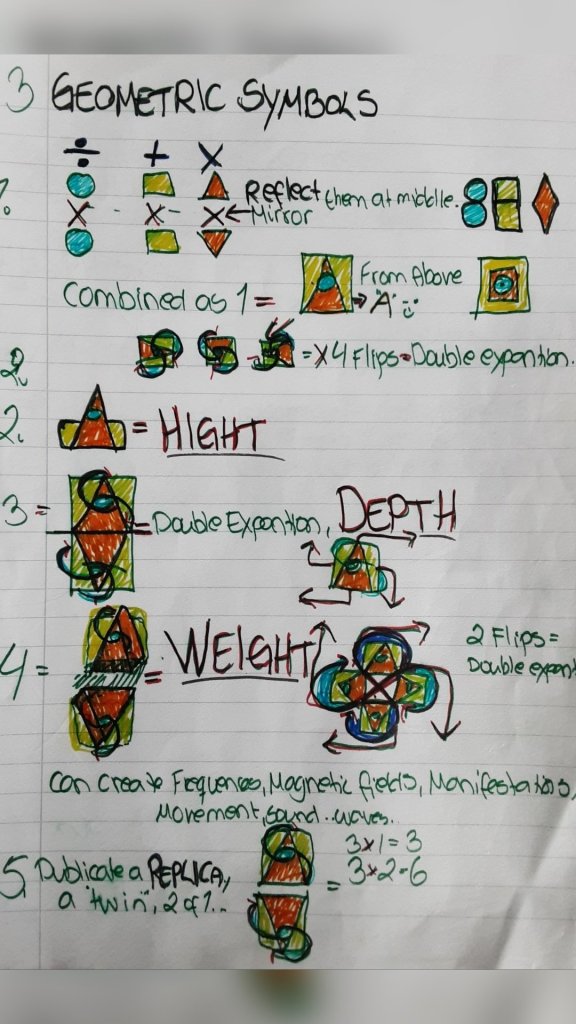 3 GEOMETRIC SYMBOLS
÷ + X
1. X - X - X ← Reflect them at middle.
Mirror
Combined as 1 = From Above
→ "A"
2. = X4 Flips = Double expantion.
2. = HIGHT
3 = = Double Expantion, DEPTH
4 = = WEIGHT 2 Flips =
Double expant
Can create Frequences, Magnetic fields, Manifestations,
Movement, sound..waves.
5. Dublicate a REPLICA, = 3x1=3
a "twin", 2 of 1.. 3x2=6